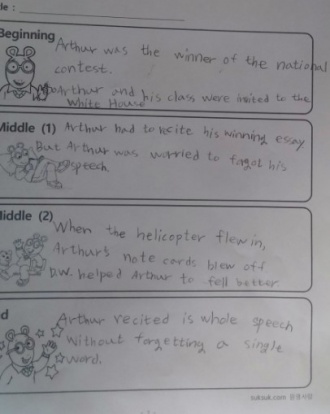 le :
Beginning
Arthur was the winner of the national
contest.
Arthur and his class were invited to the
White House
Middle (1) Arthur had to recite his winning essay
But Arthur was worried to forgot his
speech.
Middle (2)
When the helicopter flew in,
Arthur's note cards blew off
D.W. helped Arthur to fell better
d
Arthur recited is whole speech
without forgetting a single
word.
suksuk.com